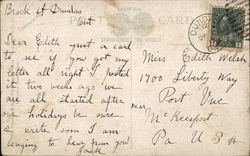 Brock St Dundas
Ont
POST CARD
Dear Edith just a card
to see if you got my
letter all right I posted
it two weeks ago we
are all started after
our holidays be sure
& write soon I am
longing to hear from you
Jack
Miss Edith Welsh
1700 Liberty Way
Port Vue
near McKeesport
Pa U S A